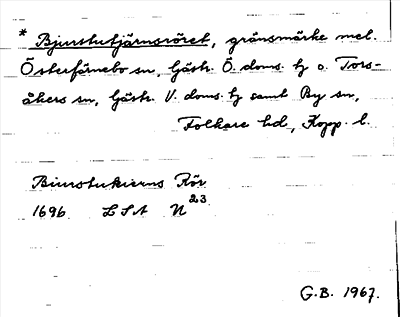 * Bjurstutjärnsröret, gränsmärke mel.
Österfärnebo sn, Gästr. Ö. doms. tg o. Tors-
åkers sn, Gästr. V. doms. tg samt By sn,
Folkare hd, Kopp. l.
Biurstukierns Rör
1696 LSA N 23
G.B. 1967.